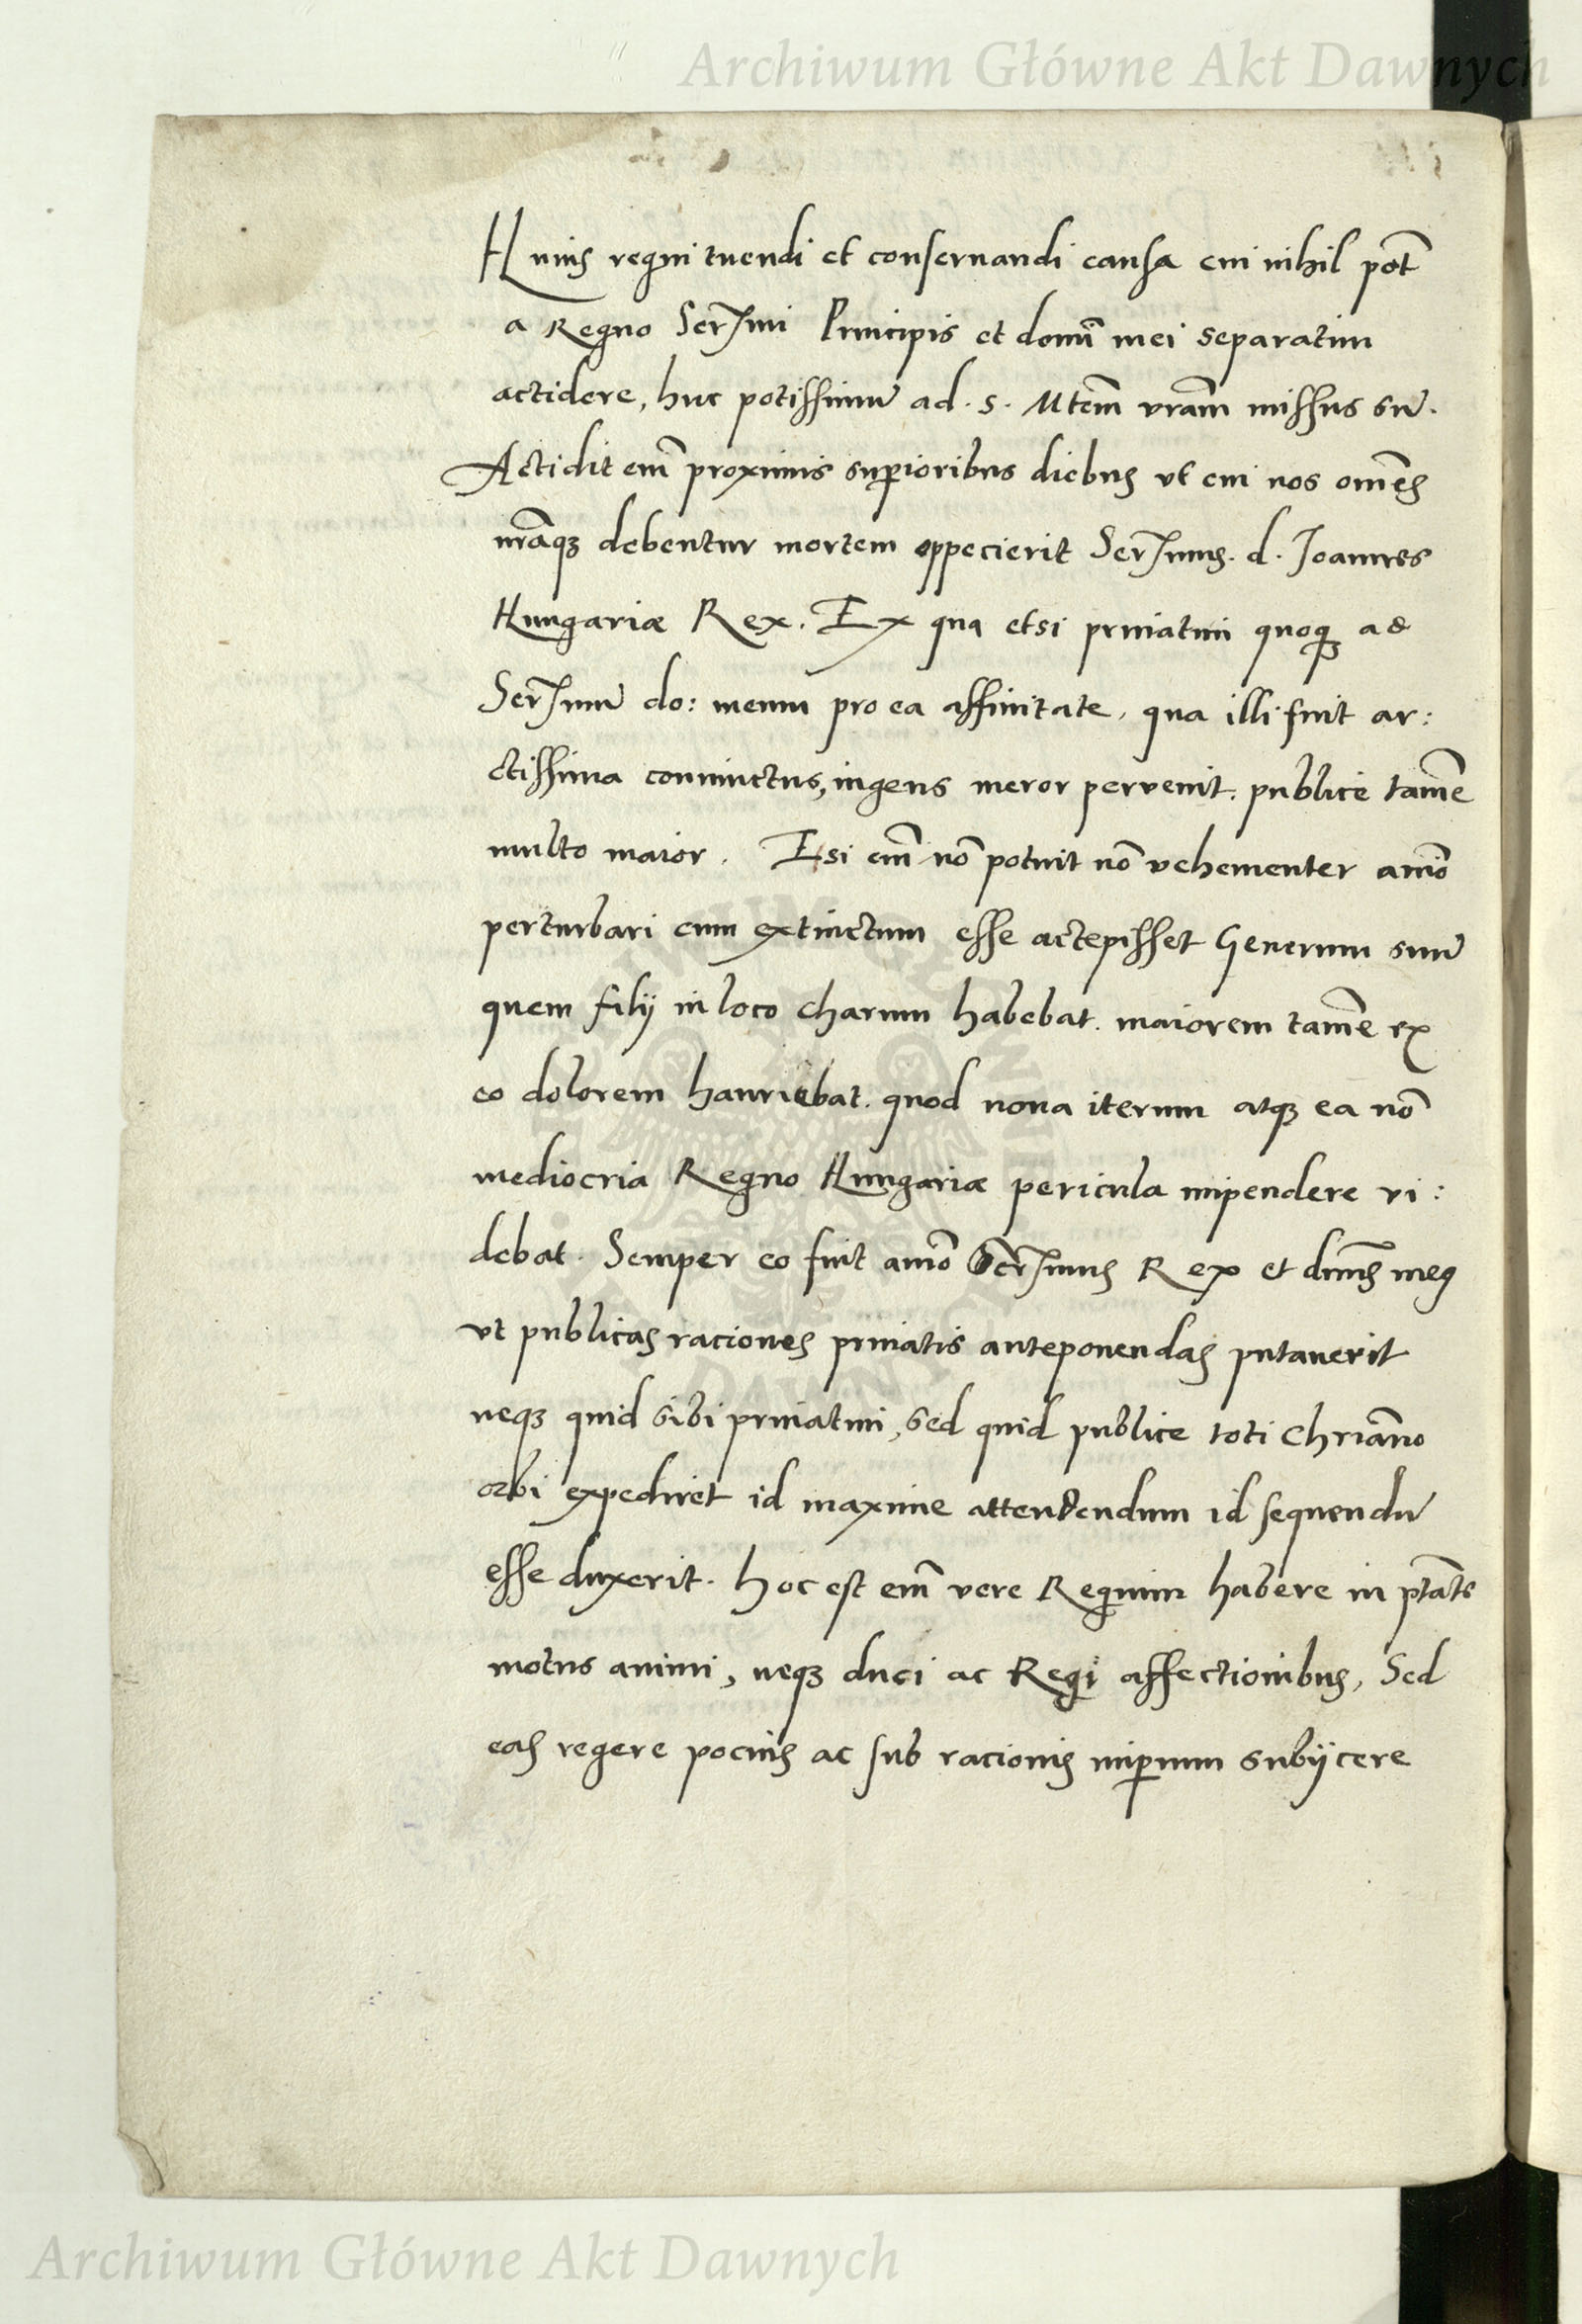 Archiwum Główne Akt Dawnych
Huius regni tuendi et conservandi causa cui nihil pot̃
a Regno Serẽmi Principis et domĩ mei separatim
actidere, huc potissimũ ad. s. Mtem̃ vram̃ missus sũ.
Actidit em̃ proximis supioribus diebus ut cui nos omẽs
nrãq3 debentur mortem oppecierit Serẽmus. d. Joannes
Hungariæ Rex. Ex qua etsi priuatim quoq3 ad
Serẽmũ do: meum pro ea affinitate, qua illi fuit ar:
ctissima conuinctus, ingens meror pervenit. publice tamẽ
multo maior. Esi em̃ nõ potuit nõ vehementer aniõ
perturbari cum extinctum esse actepisset Generum suũ
quem filij in loco charum habebat. maiorem tamẽ ex
eo dolorem hauriebat. quod noua iterum atq3 ea nõ
mediocria Regno Hungariæ pericula impendere vi:
debat. Semper eo fuit aniõ Serẽmus Rex et dñus meus
ut publicas raciones priuatis anteponendas putauerit
neq3 quid sibi priuatim, sed quid publice toti Chriãno
orbi expediret id maxime attendendum id sequendũ
esse duxerit. Hoc est em̃ vere Regnum habere in ptãte
motus animi, neq3 duci ac Regi affectionibus, Sed
eas regere pocius ac sub racionis impium subijcere
Archiwum Główne Akt Dawnych